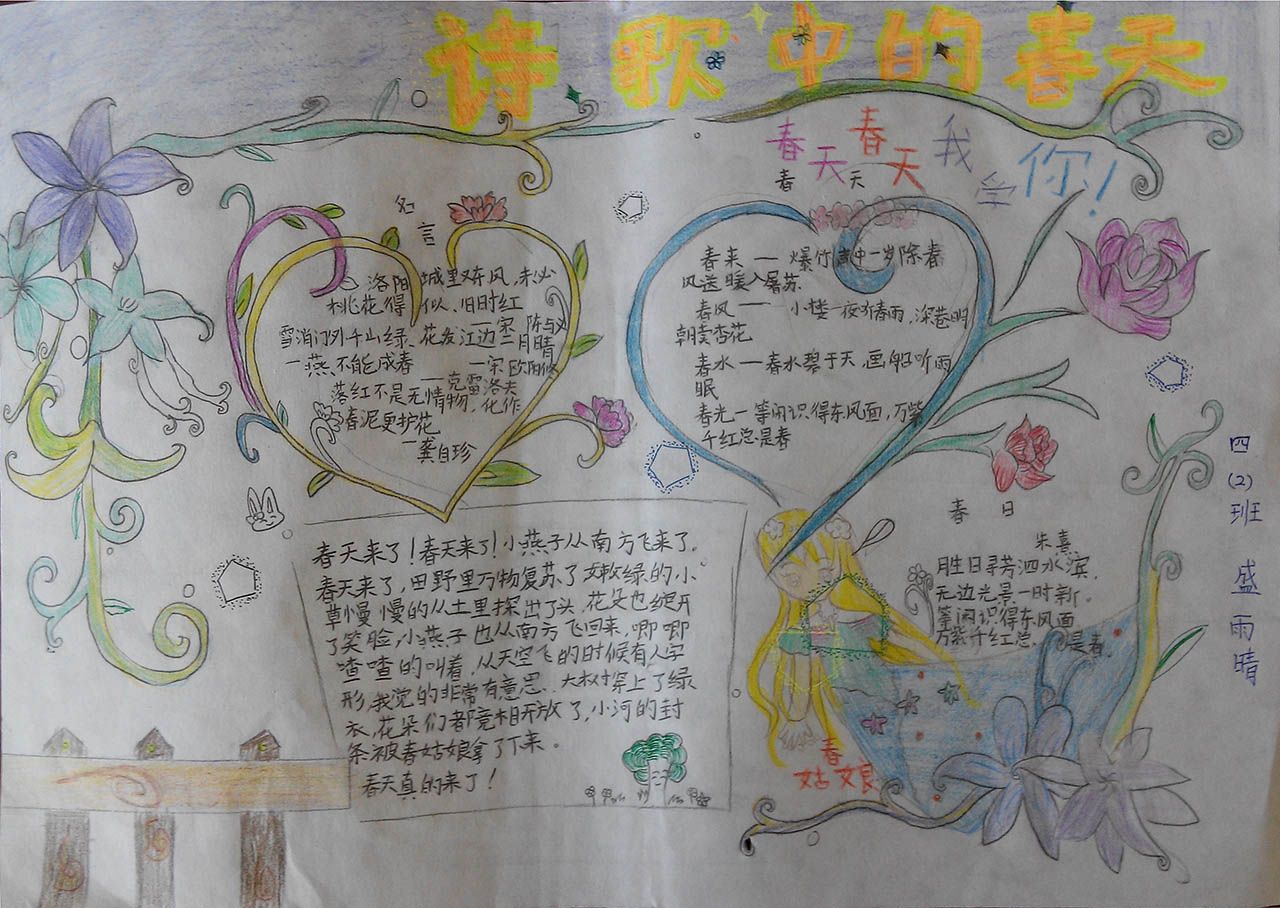 诗歌中的春天
春天春天我学你!
春 天
名言
洛阳城里又东风,未必
桃花得似、旧时红
宋 陈与义
雪消门外千山绿、花发江边二月晴
一燕不能成春 — 宋 欧阳修
— 克雷洛夫
落红不是无情物,化作
春泥更护花
— 龚自珍
春来 — 爆竹声中一岁除春
风送暖入屠苏.
春风 — 小楼一夜听春雨,深巷明
朝卖杏花
春水 — 春水碧于天,画船听雨
眠
春光 — 等闲识得东风面,万紫
千红总是春
春天来了!春天来了!小燕子从南方飞来了。
春天来了,田野里万物复苏了嫩绿的小
草慢慢的从土里探出了头,花朵也绽开
了笑脸,小燕子也从南方飞回来,唧唧
喳喳的叫着,从天空飞的时候有人字
形,我觉的非常有意思.大树穿上了绿
衣,花朵们都竞相开放了,小河的封
条被春姑娘拿了下来。
春天真的来了!
春日
朱熹
胜日寻芳泗水滨,
无边光景一时新。
等闲识得东风面
万紫千红总 是春。
春
姑娘
四(2)班 盛雨晴